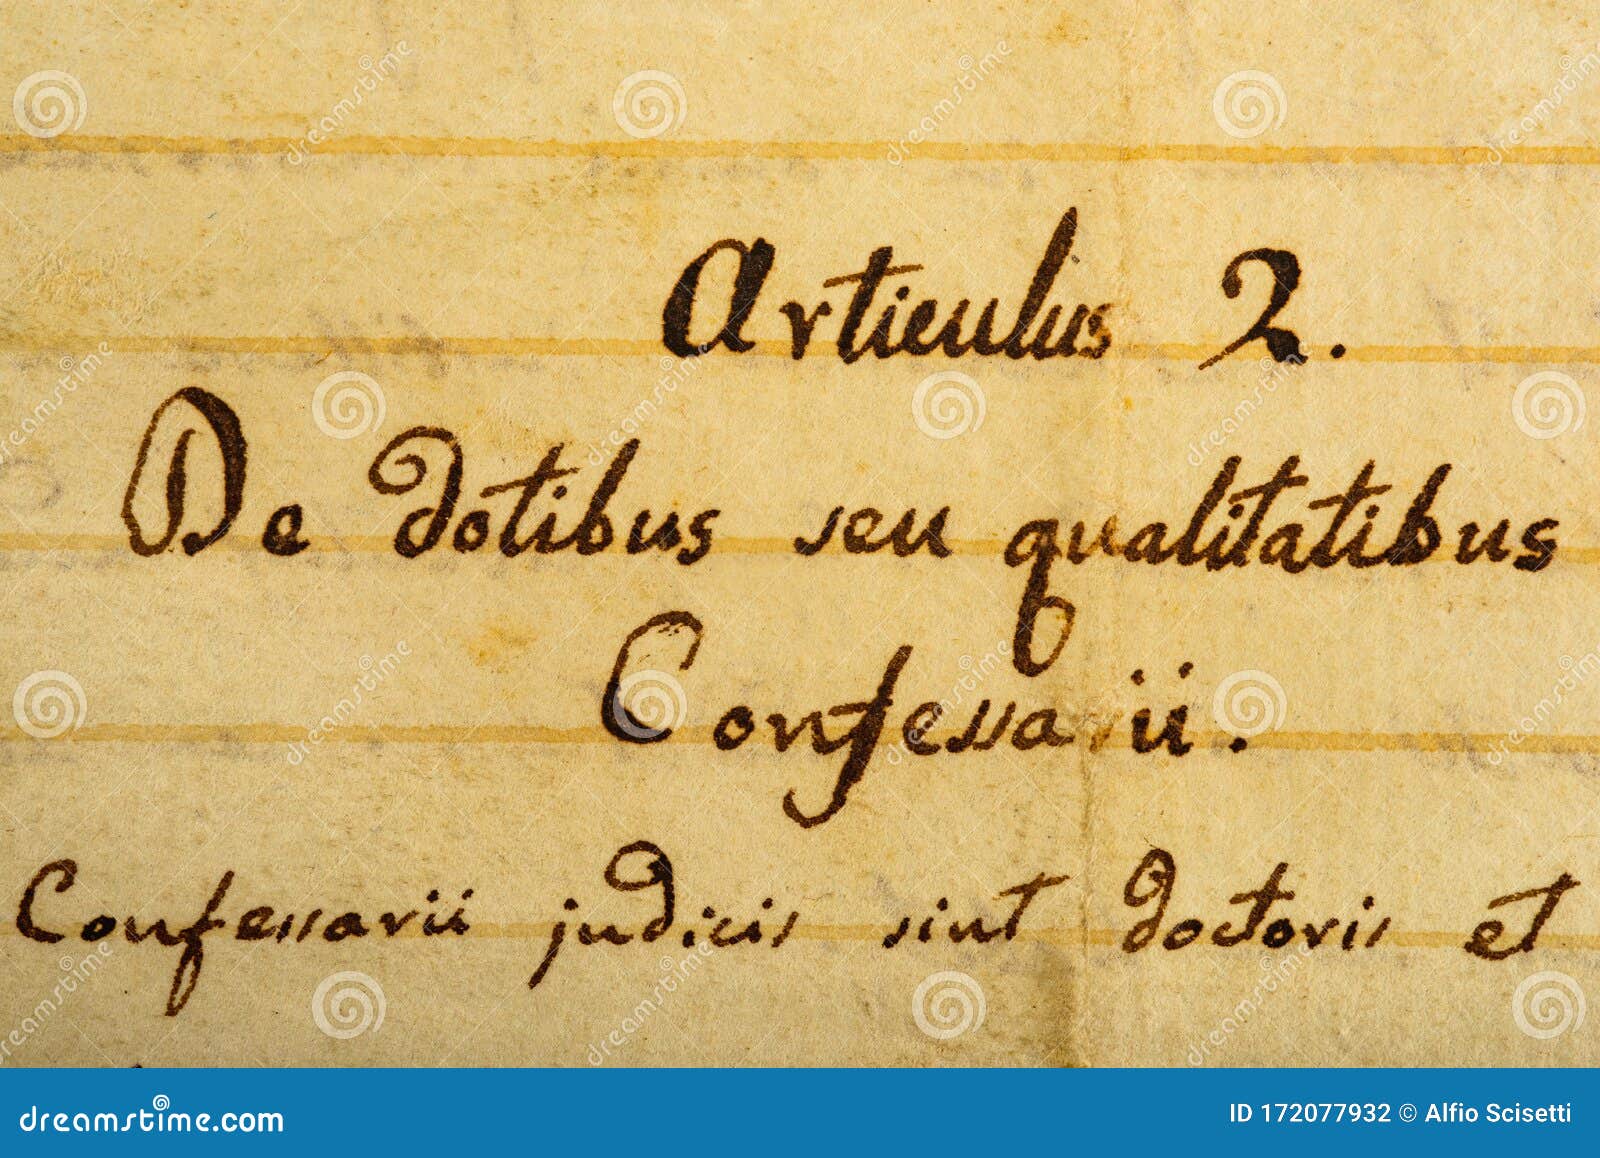 Articulus 2.
De dotibus seu qualitatibus
Confessarii.
Confessarii judicis sint doctoris et
dreamstime.com
ID 172077932 © Alfio Scisetti